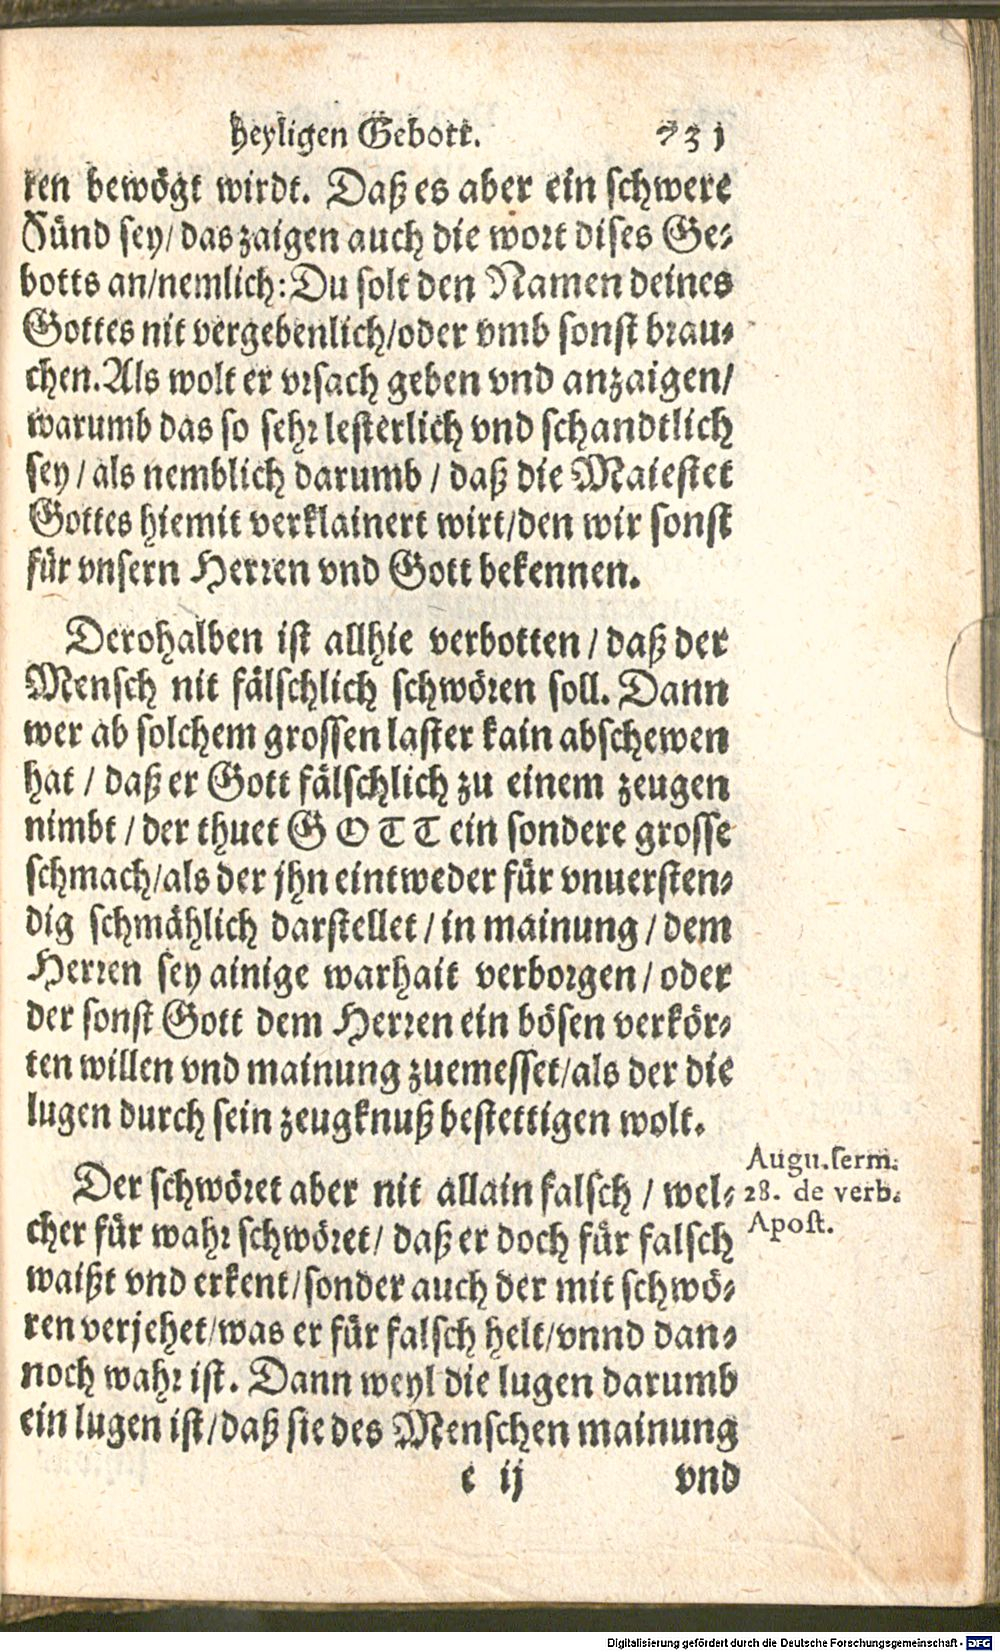 heyligen Gebott. 731
ren bewögt wirdt. Daß es aber ein schwere
Sünd sey/ das zaigen auch die wort dises Ge-
botts an/nemlich: Du solt den Namen deines
Gottes nit vergebenlich/oder vmb sonst brau-
chen. Als wolt er vrsach geben vnd anzaigen/
warumb das so sehr lesterlich vnd schandtlich
sey / als nemblich darumb / daß die Maiestet
Gottes hiemit verklainert wirt/den wir sonst
für vnsern Herren vnd Gott bekennen.
Derohalben ist allhie verbotten / daß der
Mensch nit fälschlich schwören soll. Dann
wer ab solchem grossen laster kain abschewen
hat / daß er Gott fälschlich zu einem zeugen
nimbt / der thuet GOTT ein sondere grosse
schmach/als der jhn eintweder für vnuersten-
dig schmählich darstellet / in mainung / dem
Herren sey ainige warhait verborgen / oder
der sonst Gott dem Herren ein bösen verkör-
ten willen vnd mainung zuemesset/als der die
lugen durch sein zeugknuß bestettigen wolt.
Der schwöret aber nit allain falsch / wel-
cher für wahr schwöret/ daß er doch für falsch
waißt vnd erkent/sonder auch der mit schwö-
ren verjehet/was er für falsch helt/vnnd dan-
noch wahr ist. Dann weyl die lugen darumb
ein lugen ist/daß sie des Menschen mainung
e ij vnd
Augu. serm.
28. de verb.
Apost.
Digitalisierung gefördert durch die Deutsche Forschungsgemeinschaft - DFG